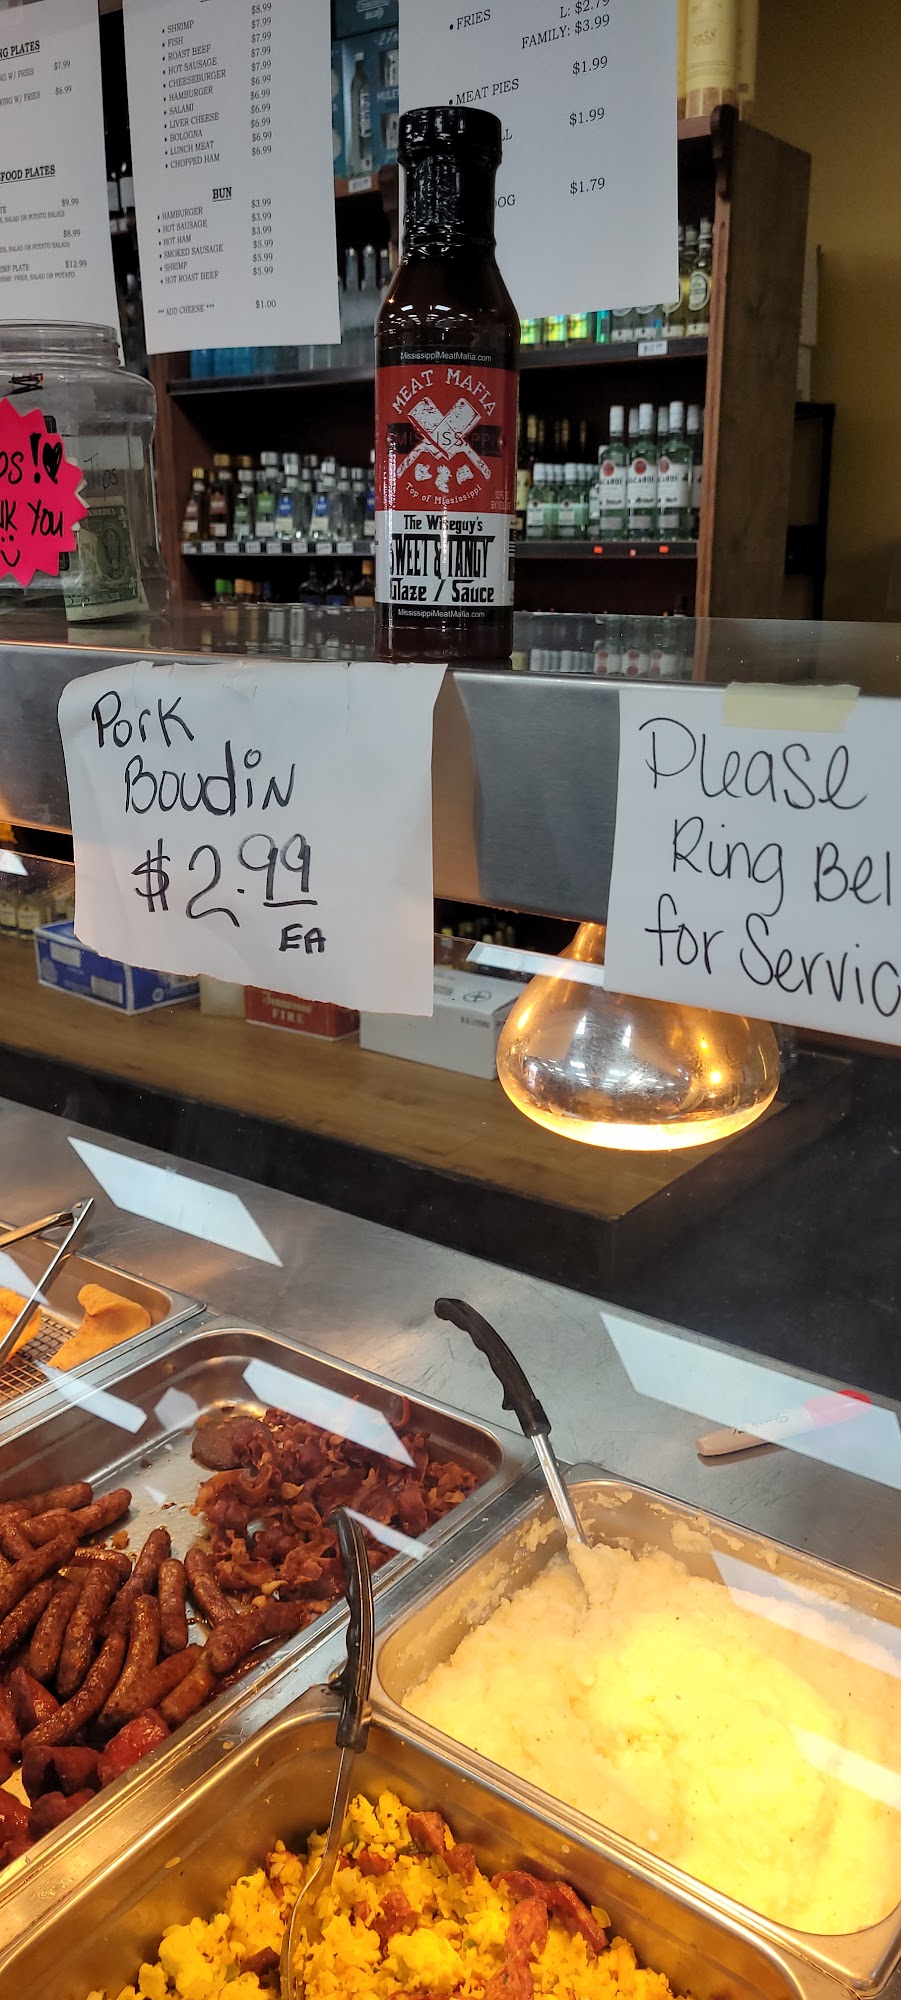 NG PLATES
NG W/ FRIES $7.99
WING W/ FRIES $6.99
FOOD PLATES
TE $9.99
$8.99
IMP PLATE $12.99
$8.99
• SHRIMP $7.99
• FISH $7.99
• ROAST BEEF $7.99
• HOT SAUSAGE $7.99
• CHEESEBURGER $6.99
• HAMBURGER $6.99
• SALAMI $6.99
• LIVER CHEESE $6.99
• BOLOGNA $6.99
• LUNCH MEAT $6.99
• CHOPPED HAM $6.99
BUN
• HAMBURGER $3.99
• HOT SAUSAGE $3.99
• HOT HAM $3.99
• SMOKED SAUSAGE $5.99
• SHRIMP $5.99
• HOT ROAST BEEF $5.99
*** ADD CHEESE *** $1.00
• FRIES L: $2.79
FAMILY: $3.99
• MEAT PIES $1.99
LL $1.99
OG $1.79
OS!
NK YOU
TIPS
MississippiMeatMafia.com
MEAT MAFIA
MISSISSIPPI
Top of Mississippi
The Wiseguy's
SWEET & TANGY
Glaze / Sauce
MississippiMeatMafia.com
BACARDI
Pork
Boudin
$2.99
EA
Please
Ring Bel
for Servic
FIRE